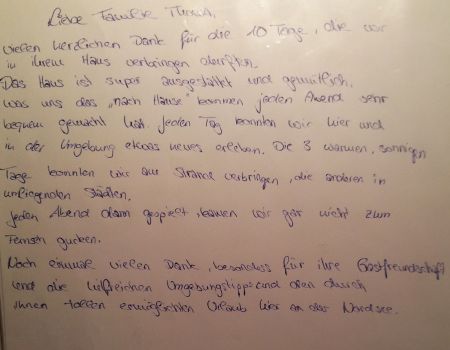 Liebe Familie
vielen herzlichen Dank für die 10 Tage, die wir
in ihrem Haus verbringen durften.
Das Haus ist super ausgestattet und gemütlich,
was uns das "nach Hause" kommen jeden Abend sehr
bequem gemacht hat. Jeden Tag konnten wir hier und
in der Umgebung etwas neues erleben. Die 3 warmen, sonnigen
Tage konnten wir am Strand verbringen, die anderen in
umliegenden Städten.
Jeden Abend dann gespielt, kamen wir gar nicht zum
Fernseh gucken.
Noch einmal vielen Dank, besonders für ihre Gastfreundschaft
und die hilfreichen Umgebungstipps und den durch
ihnen tollen ermöglichten Urlaub hier an der Nordsee.